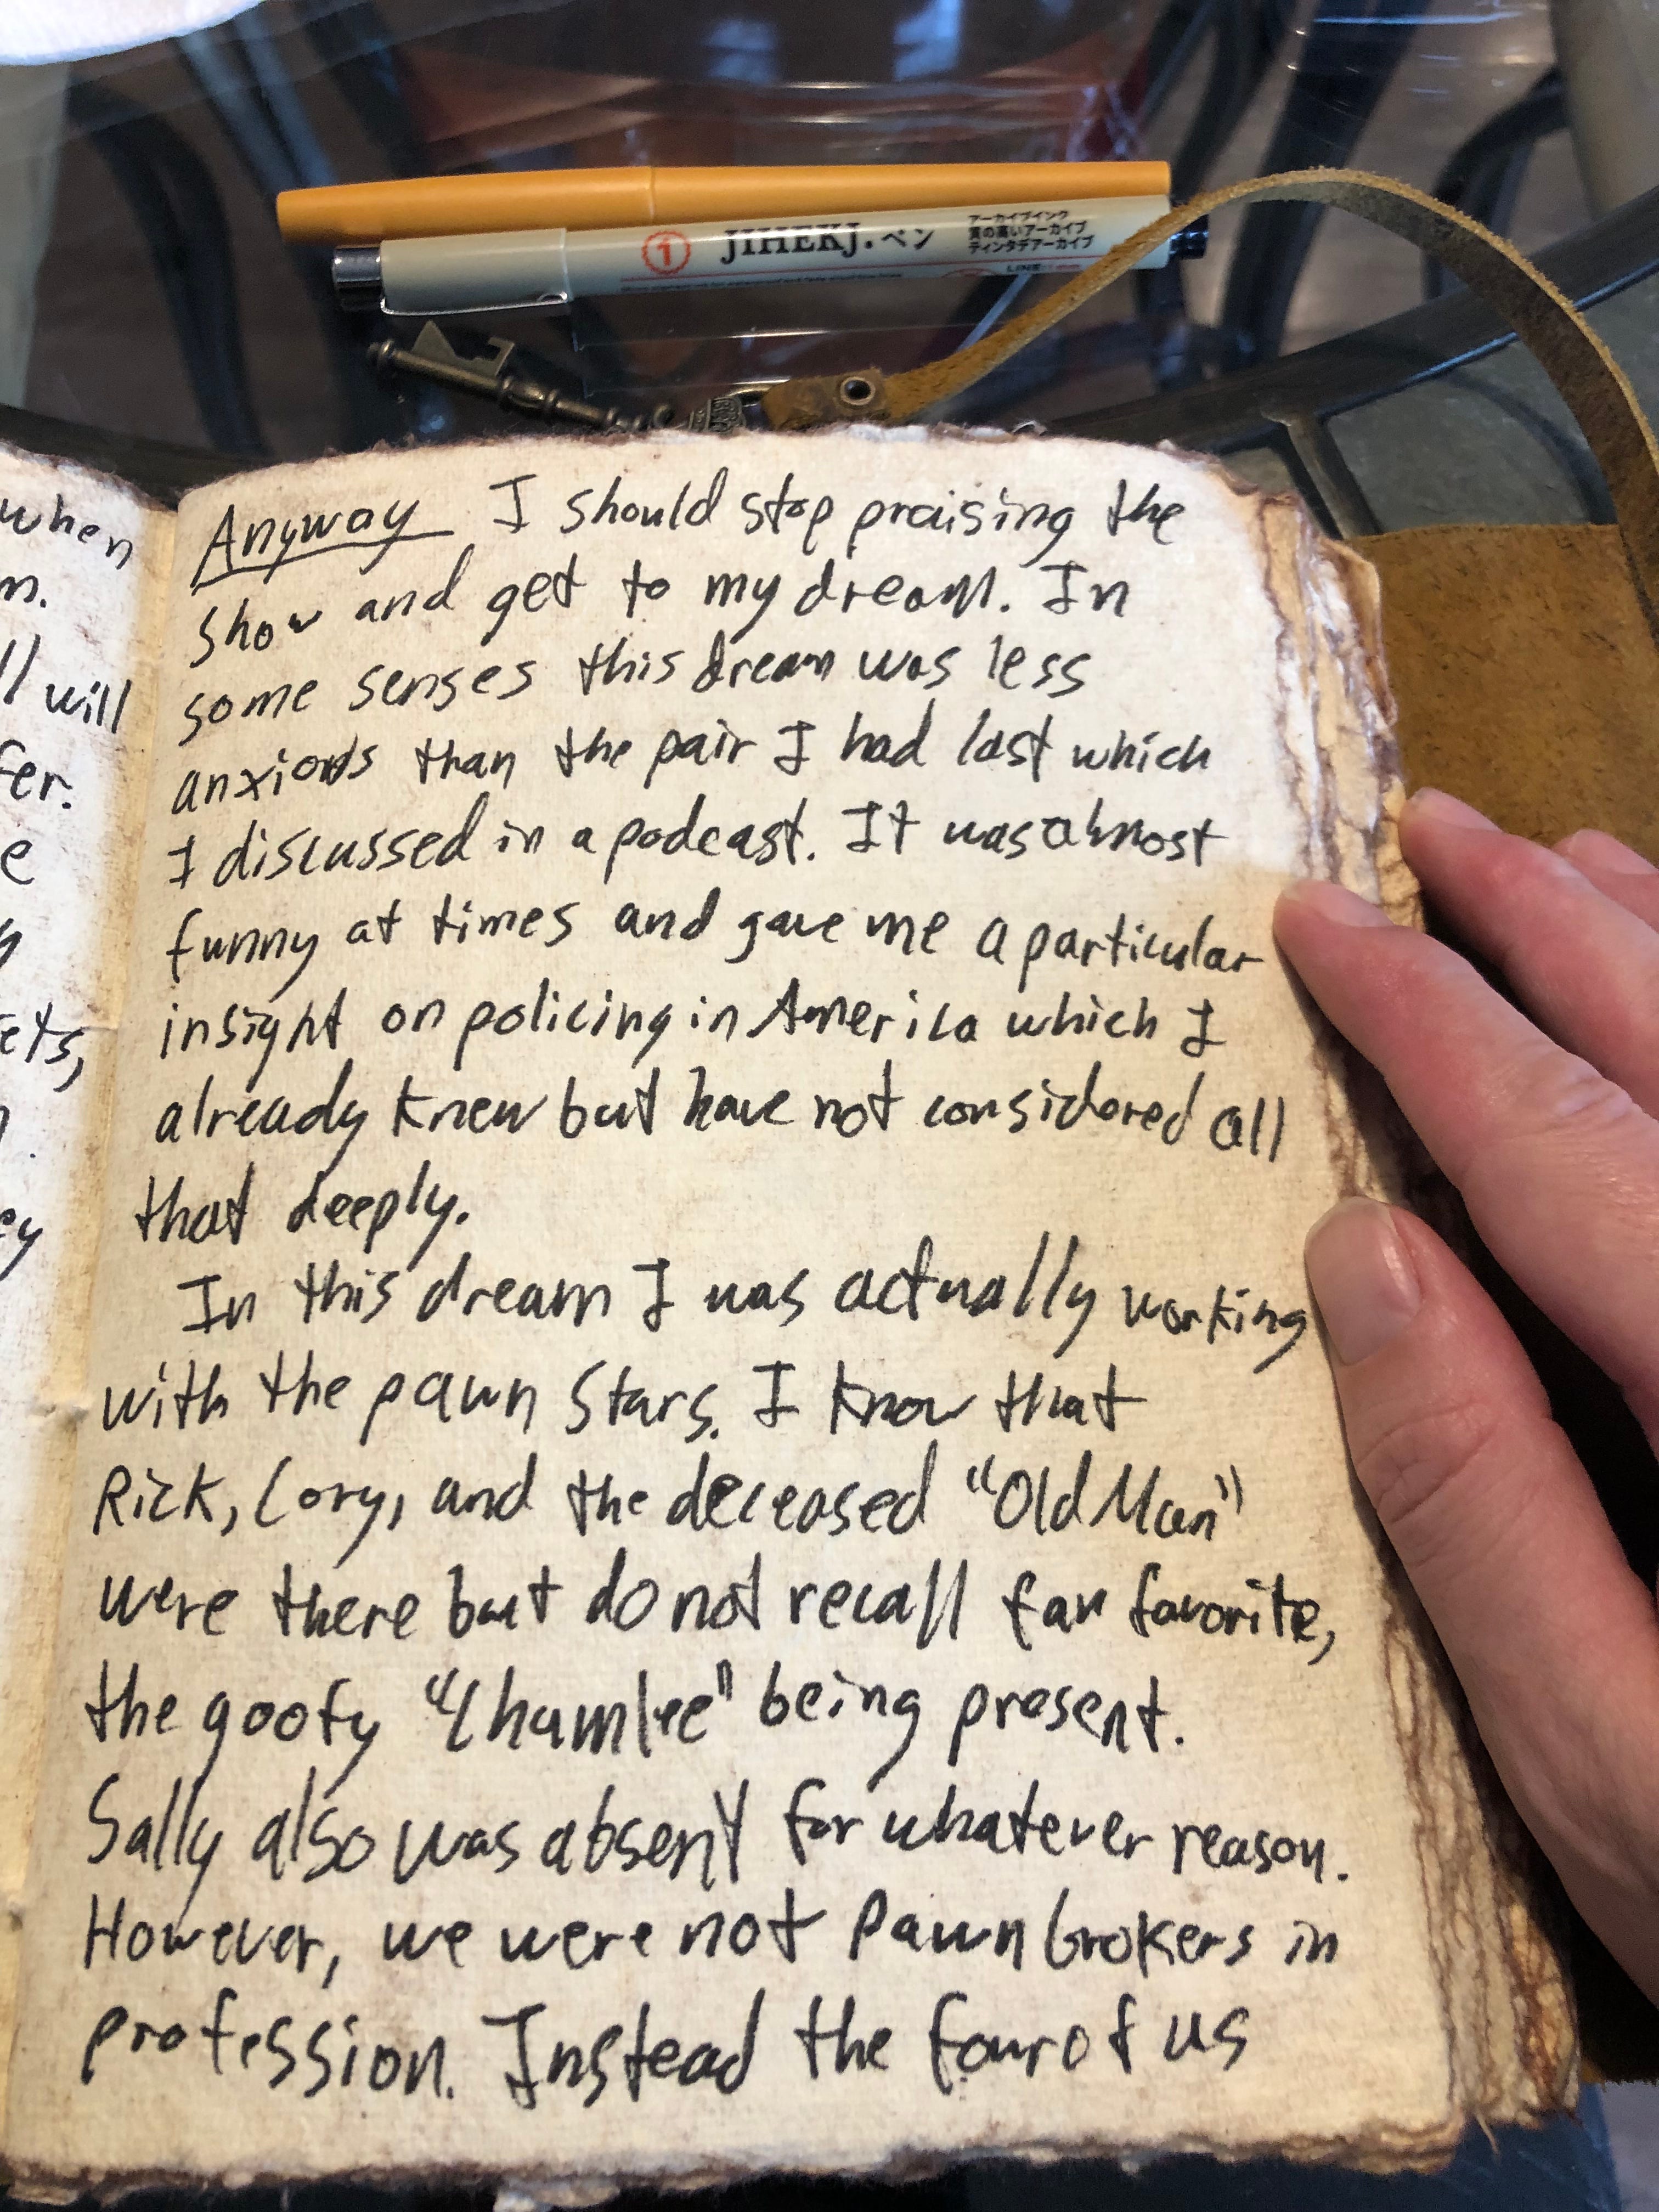 1 JIHEKJ.ペン
アーカイブインク
質の高いアーカイブ
ティンタデアーカイブ
LINE
when
m.
ll will
fer.
e
y
ets,
ey
Anyway I should stop praising the
show and get to my dream. In
some senses this dream was less
anxious than the pair I had last which
I discussed in a podcast. It was almost
funny at times and gave me a particular
insight on policing in America which I
already knew but have not considered all
that deeply.
In this dream I was actually working
with the pawn stars. I know that
Rick, Cory, and the deceased "Old Man"
were there but do not recall fan favorite,
the goofy "Chumlee" being present.
Sally also was absent for whatever reason.
However, we were not pawn brokers in
profession. Instead the four of us